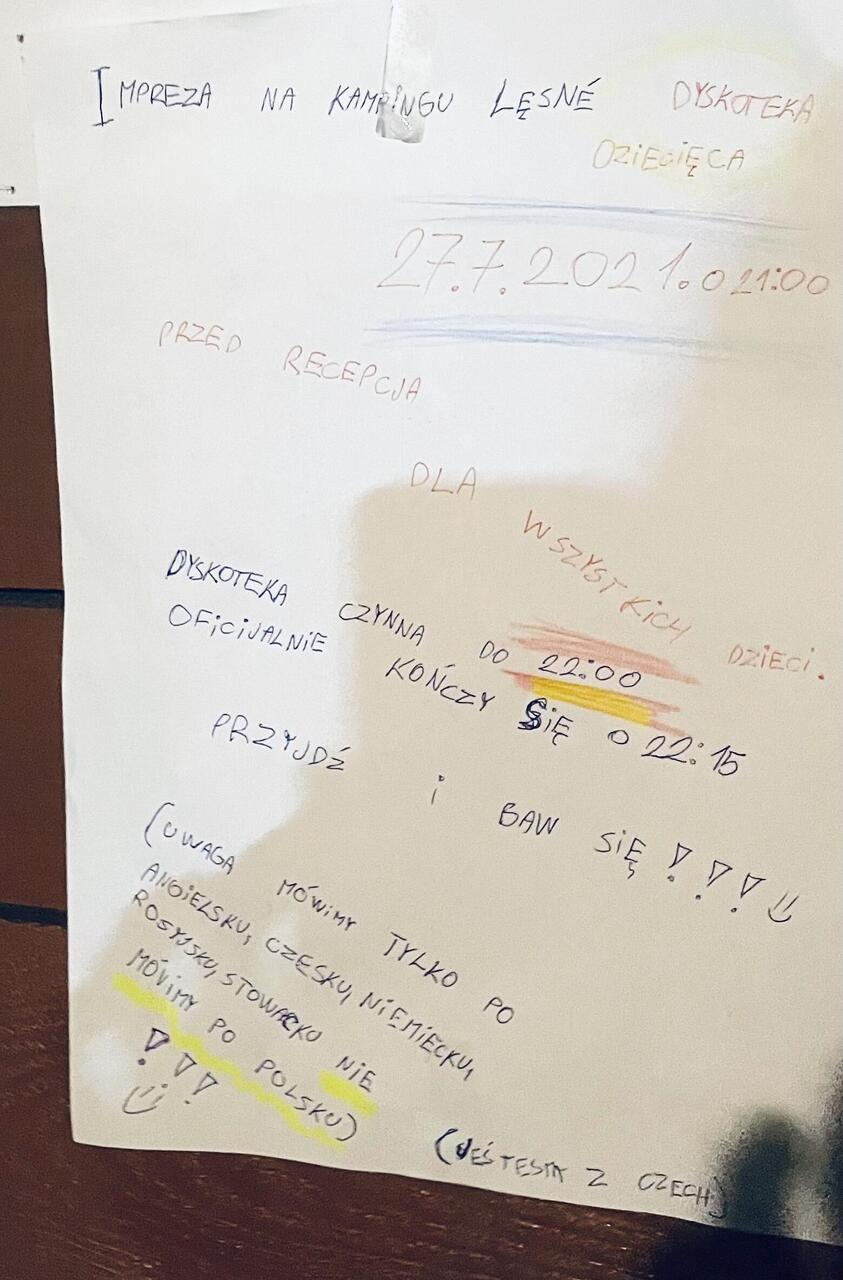 IMPREZA NA KAMPINGU LĘSNÉ DYSKOTEKA
DZIECIĘCA
27.7.2021. O 21:00
PRZED RECEPCJA
DLA
WSZYSTKICH
DZIECI.
DYSKOTEKA CZYNNA DO 22:00
OFICIJALNIE KOŃCZY SIĘ O 22:15
PRZYJDŹ i BAW SIĘ!!!
(UWAGA MÓWIMY TYLKO PO
ANGIELSKU, CZĘSKU, NIEMIĘCKU,
ROSYJSKU, STOWACKU NIE
MÓVIMY PO POLSKU)
!!!
(JEŚTESM Z CZECH)